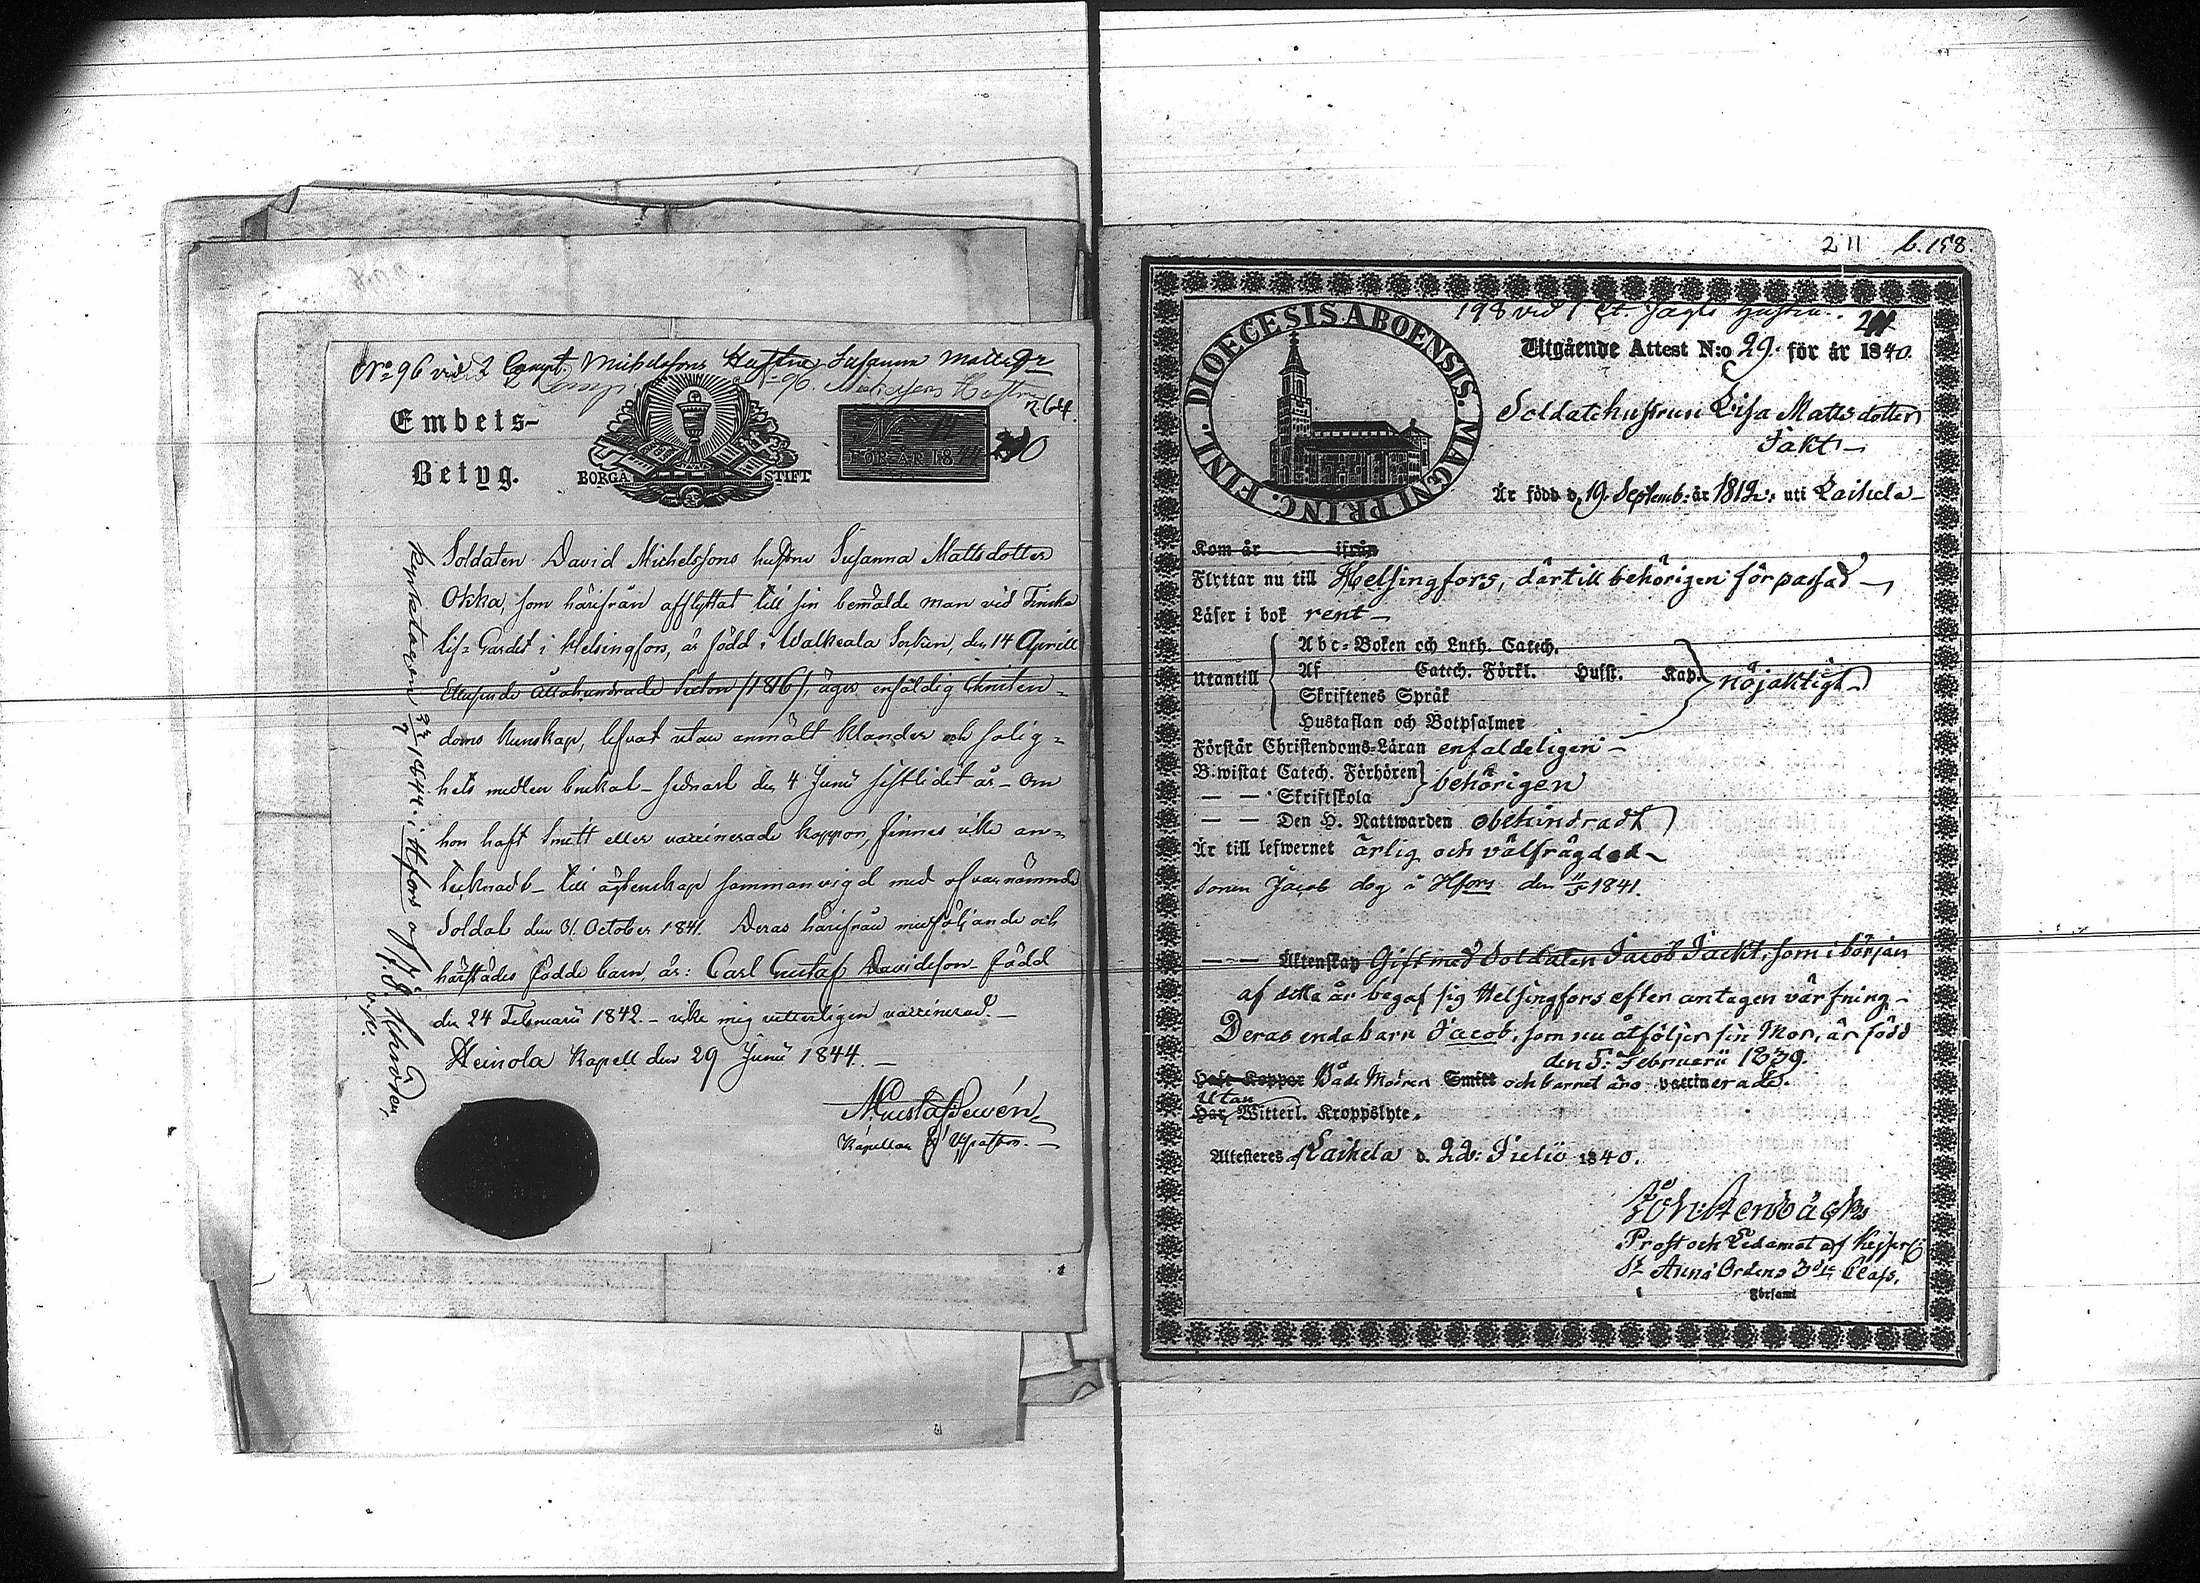 No 96 vid 2 Compt. Michelsons Hustru Susanna Mattsdr
Comp. No 96. Hustru
264.
Embets-
Betyg.
BORGA STIFT
No 14
FÖR ÅR 1844
Soldaten David Michelssons hustru Susanna Mattsdotter
Okka, som härifrån afflyttat till sin bemälde man vid Finska
lif-Gardet i Helsingfors, är född i Walkeala Socken, den 14 Aprill
Ettusende Åttahundrade Sexton /1816/, äger enfäldig Christen-
doms kunskap, lefvat utan anmält klander och salig-
hets medlen brukat – sednast den 4 Junii sistlidet år – Om
hon haft Smitt eller vaccinerade koppor, finnes icke an-
tecknadt – till äktenskap sammanvigd med ofvannämnde
Soldat den 31 October 1841. Deras härifrån medföljande och
härstädes födde barn, är: Carl Gustaf Davidsson född
den 24 Februarii 1842 – icke mig vetterligen vaccinerad. –
Heinola Kapell den 29 Junii 1844. –
Kapellan
Kyrkotagen 1844 i Hfors af
v.p.
211 b. 158.
198 vid 1 Ct. Jagts hustru.
DIOECESIS ABOENSIS. MAGNI PRINC. FINL.
Utgående Attest N:o 29. för år 1840.
Soldatehustrun Lisa Mattsdotter
Jakt –
Är född d. 19. Septemb: år 1812. uti Laihela –
Kom år ifrån
Flyttar nu till Helsingfors, därtill behörigen förpassad –
Läser i bok rent –
Utantill
Abc-Boken och Luth. Catech.
Af Catech. Förkl. Husst. Kap.
Skriftenes Språk
Hustaflan och Botpsalmer
nöjaktigt
Förstår Christendoms-Läran enfaldeligen –
B.wistat Catech. Förhören
— — Skriftskola
behörigen
— — Den H. Nattwarden obehindradt
Är till lefwernet ärlig och välfrägdad
Sonen Jacob dog i Hfors den 11/5 1841.
— — Äktenskap Gift med Soldaten Jacob Jackt, som i början
af detta år begaf sig Helsingfors efter antagen värfning –
Deras enda barn Jacob, som nu åtföljer sin Mor, är född
den 5. Februarii 1839.
Haft Koppor Både Modren Smitt och barnet äro vaccinerade.
Utan
Har Witterl. Kroppslyte.
Attesteres af Laihela d. 22: Julii 1840.
Prost och Ledamot af Kejserl
St Anna Ordens 3dje Class.
Församl